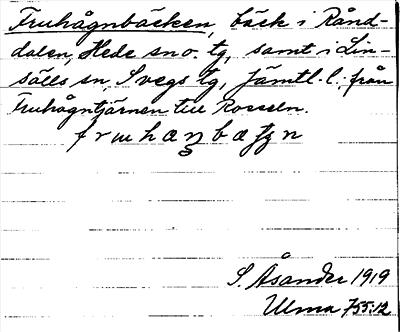 Fruhågnbäcken, bäck i Rånd-
dalen, Hede sn o. tg, samt i Lin-
sälls sn, Svegs tg, Jämtl. l.; från
Fruhågntjärnen till Rosseln.
S. Åsander 1919
Ulma 755:12